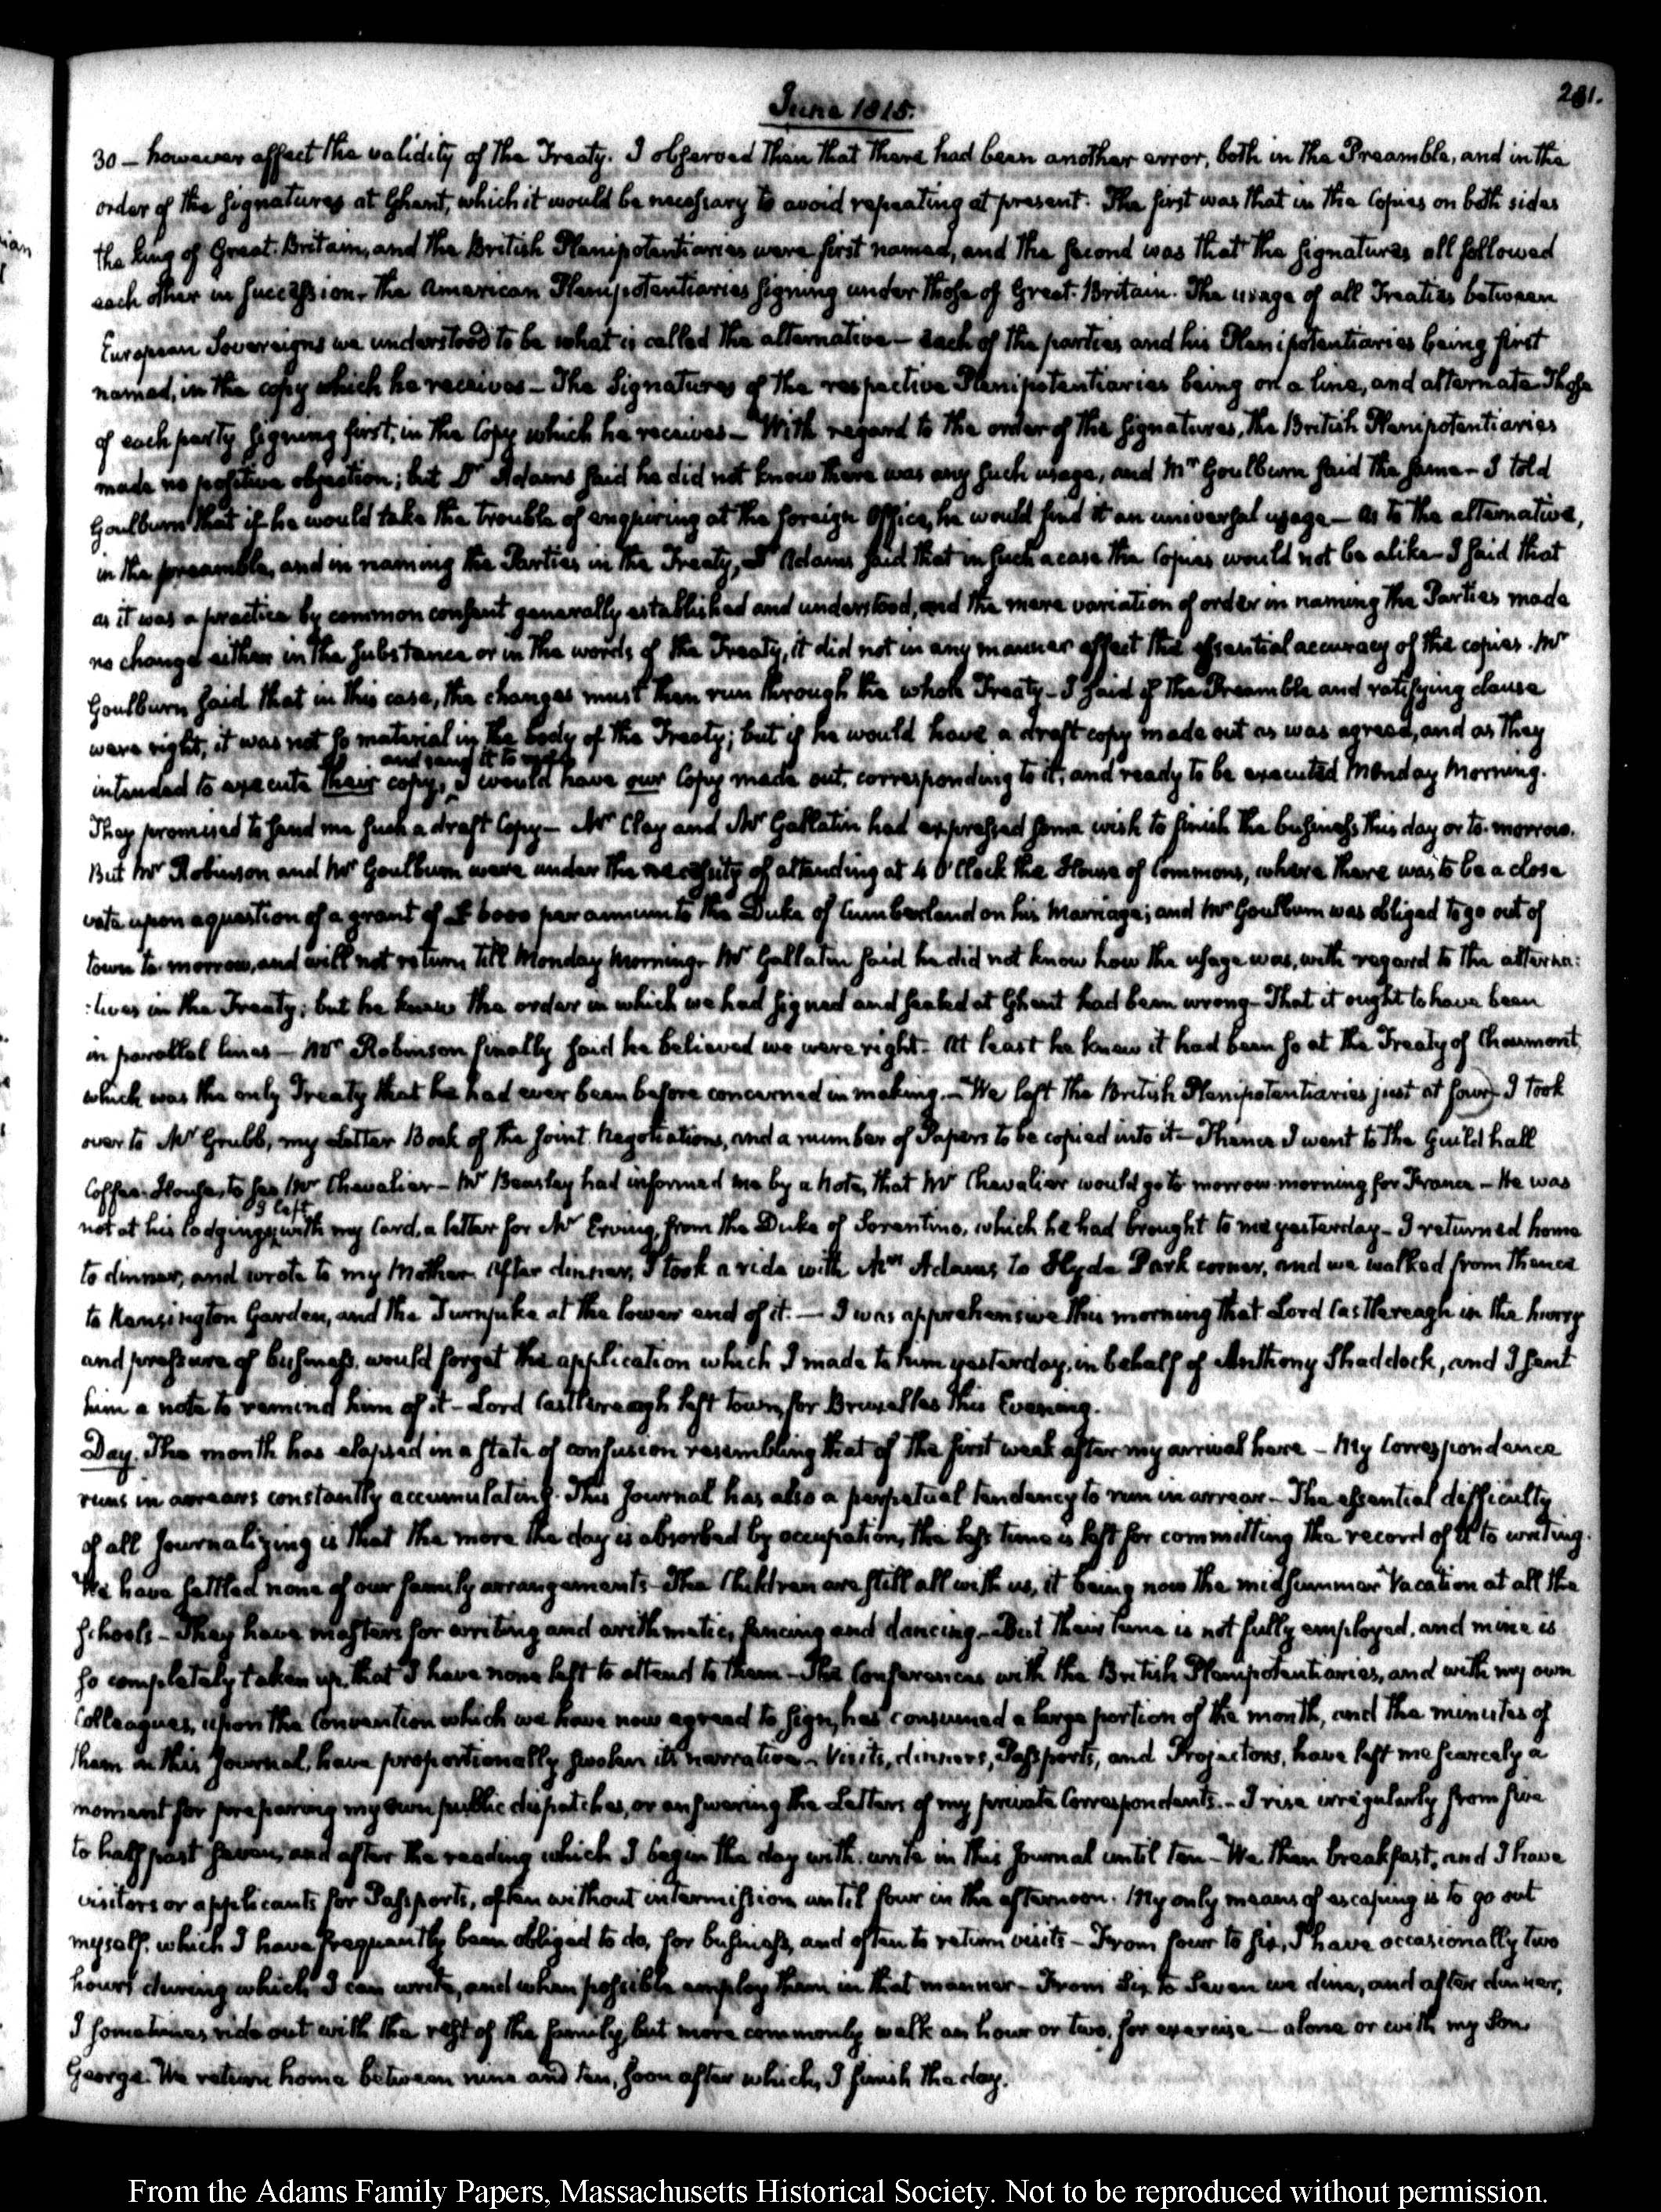 June 1815.
231.
30 — however affect the validity of the Treaty. I observed then that there had been another error, both in the Preamble, and in the
order of the signatures at Ghent, which it would be necessary to avoid repeating at present. The first was that in the Copies on both sides
the king of Great-Britain, and the British Plenipotentiaries were first named, and the second was that the signatures all followed
each other in succession, the American Plenipotentiaries signing under those of Great-Britain. The usage of all Treaties between
European Sovereigns we understood to be what is called the alternative — each of the parties and his Plenipotentiaries being first
named, in the copy which he receives — The Signatures of the respective Plenipotentiaries being on a line, and alternate Those
of each party signing first, in the Copy which he receives — With regard to the order of the signatures, the British Plenipotentiaries
made no positive objection; but Dr Adams said he did not know there was any such usage, and Mr Goulburn said the same — I told
Goulburn that if he would take the trouble of enquiring at the foreign Office, he would find it an universal usage — As to the alternative,
in the preamble, and in naming the Parties in the Treaty, Dr Adams said that in such a case the Copies would not be alike — I said that
as it was a practice by common consent generally established and understood, and the mere variation of order in naming the Parties made
no change either in the substance or in the words of the Treaty, it did not in any manner affect the essential accuracy of the copies. Mr
Goulburn said that in this case, the changes must then run through the whole Treaty — I said if the Preamble and ratifying clause
were right, it was not so material in the body of the Treaty; but if he would have a draft copy made out as was agreed, and as they
and send it to me
intended to execute their copy, I would have our Copy made out, corresponding to it, and ready to be executed Monday Morning.
They promised to send me such a draft Copy — Mr Clay and Mr Gallatin had expressed some wish to finish the business this day or to-morrow.
But Mr Robinson and Mr Goulburn were under the necessity of attending at 4 O'Clock the House of Commons, where there was to be a close
vote upon a question of a grant of £6000 per annum to the Duke of Cumberland on his Marriage; and Mr Goulburn was obliged to go out of
town to-morrow, and will not return till Monday Morning. Mr Gallatin said he did not know how the usage was, with regard to the alterna:
:tives in the Treaty; but he knew the order in which we had signed and sealed at Ghent had been wrong — That it ought to have been
in parallel lines — Mr Robinson finally said he believed we were right. At least he knew it had been so at the Treaty of Chaumont,
which was the only Treaty that he had ever been before concerned in making. — We left the British Plenipotentiaries just at four — I took
over to Mr Grubb, my Letter Book of the joint Negotiations, and a number of Papers to be copied into it — Thence I went to the Guildhall
Coffee-House, to see Mr Chevalier — Mr Beasley had informed me by a Note, that Mr Chevalier would go to-morrow-morning for France — He was
I left
not at his lodgings; with my Card, a letter for Mr Erving, from the Duke of Sorentino, which he had brought to me yesterday — I returned home
to dinner, and wrote to my Mother. After dinner, I took a ride with Mrs Adams to Hyde Park corner, and we walked from thence
to Kensington Garden, and the Turnpike at the lower end of it. — I was apprehensive this morning that Lord Castlereagh in the hurry
and pressure of business, would forget the application which I made to him yesterday, in behalf of Anthony Shaddock, and I sent
him a note to remind him of it — Lord Castlereagh left town, for Bruxelles this Evening.
Day. The month has elapsed in a state of confusion resembling that of the first week after my arrival here — My Correspondence
runs in arrears constantly accumulating. This Journal has also a perpetual tendency to run in arrear — The essential difficulty
of all Journalizing is that the more the day is absorbed by occupation, the less time is left for committing the record of it to writing.
We have settled none of our family arrangements — The Children are still all with us, it being now the midsummer Vacation at all the
Schools — They have masters for writing and arithmetic, fencing and dancing — But their time is not fully employed, and mine is
so completely taken up, that I have none left to attend to them — The Conferences with the British Plenipotentiaries, and with my own
Colleagues, upon the Convention which we have now agreed to sign, has consumed a large portion of the month, and the minutes of
them in this Journal, have proportionally swolen its narrative — Visits, dinners, Passports, and Projectors, have left me scarcely a
moment for preparing my own public dispatches, or answering the Letters of my private Correspondents. — I rise irregularly from five
to half past seven, and after the reading which I begin the day with, write in this Journal until ten — We then breakfast, and I have
visitors or applicants for Passports, often without intermission until four in the afternoon. My only means of escaping is to go out
myself, which I have frequently been obliged to do, for business, and often to return visits — From four to six, I have occasionally two
hours during which I can write, and when possible employ them in that manner — From Six to Seven we dine, and after dinner,
I sometimes ride out with the rest of the family, but more commonly walk an hour or two, for exercise — alone or with my Son
George. We return home between nine and ten, soon after which, I finish the day.
From the Adams Family Papers, Massachusetts Historical Society. Not to be reproduced without permission.